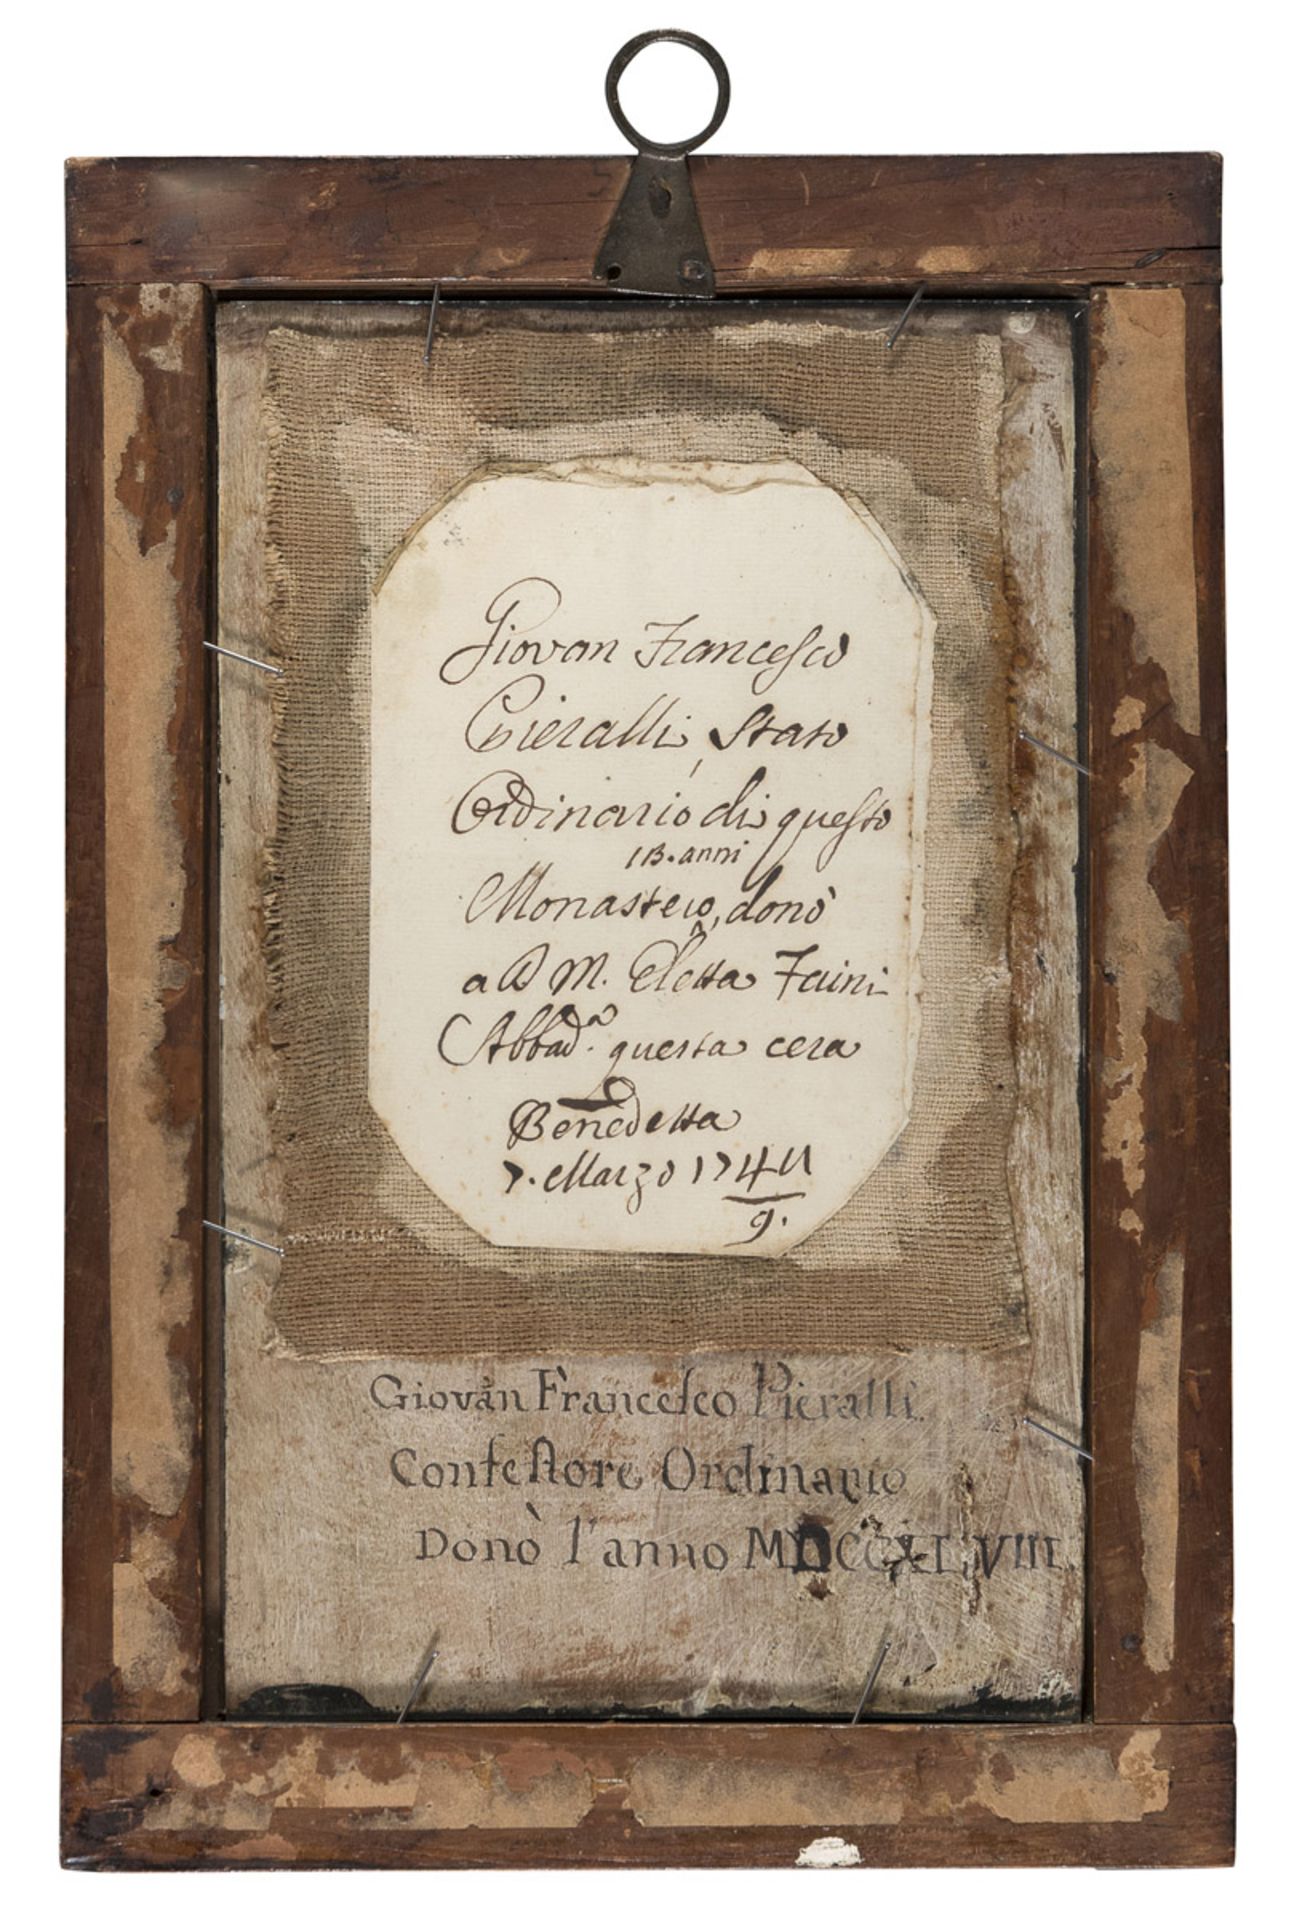 Giovan Francesco
Pieralli, stato
Ordinario di questo
13. anni
Monastero, donò
a D M. Eletta Faini
Abbad.ª questa cera
Benedetta
7. Marzo 174
9.
Giovan Francesco Pieralli
Confessore Ordinario
Donò l'anno MDCCXLVIII.